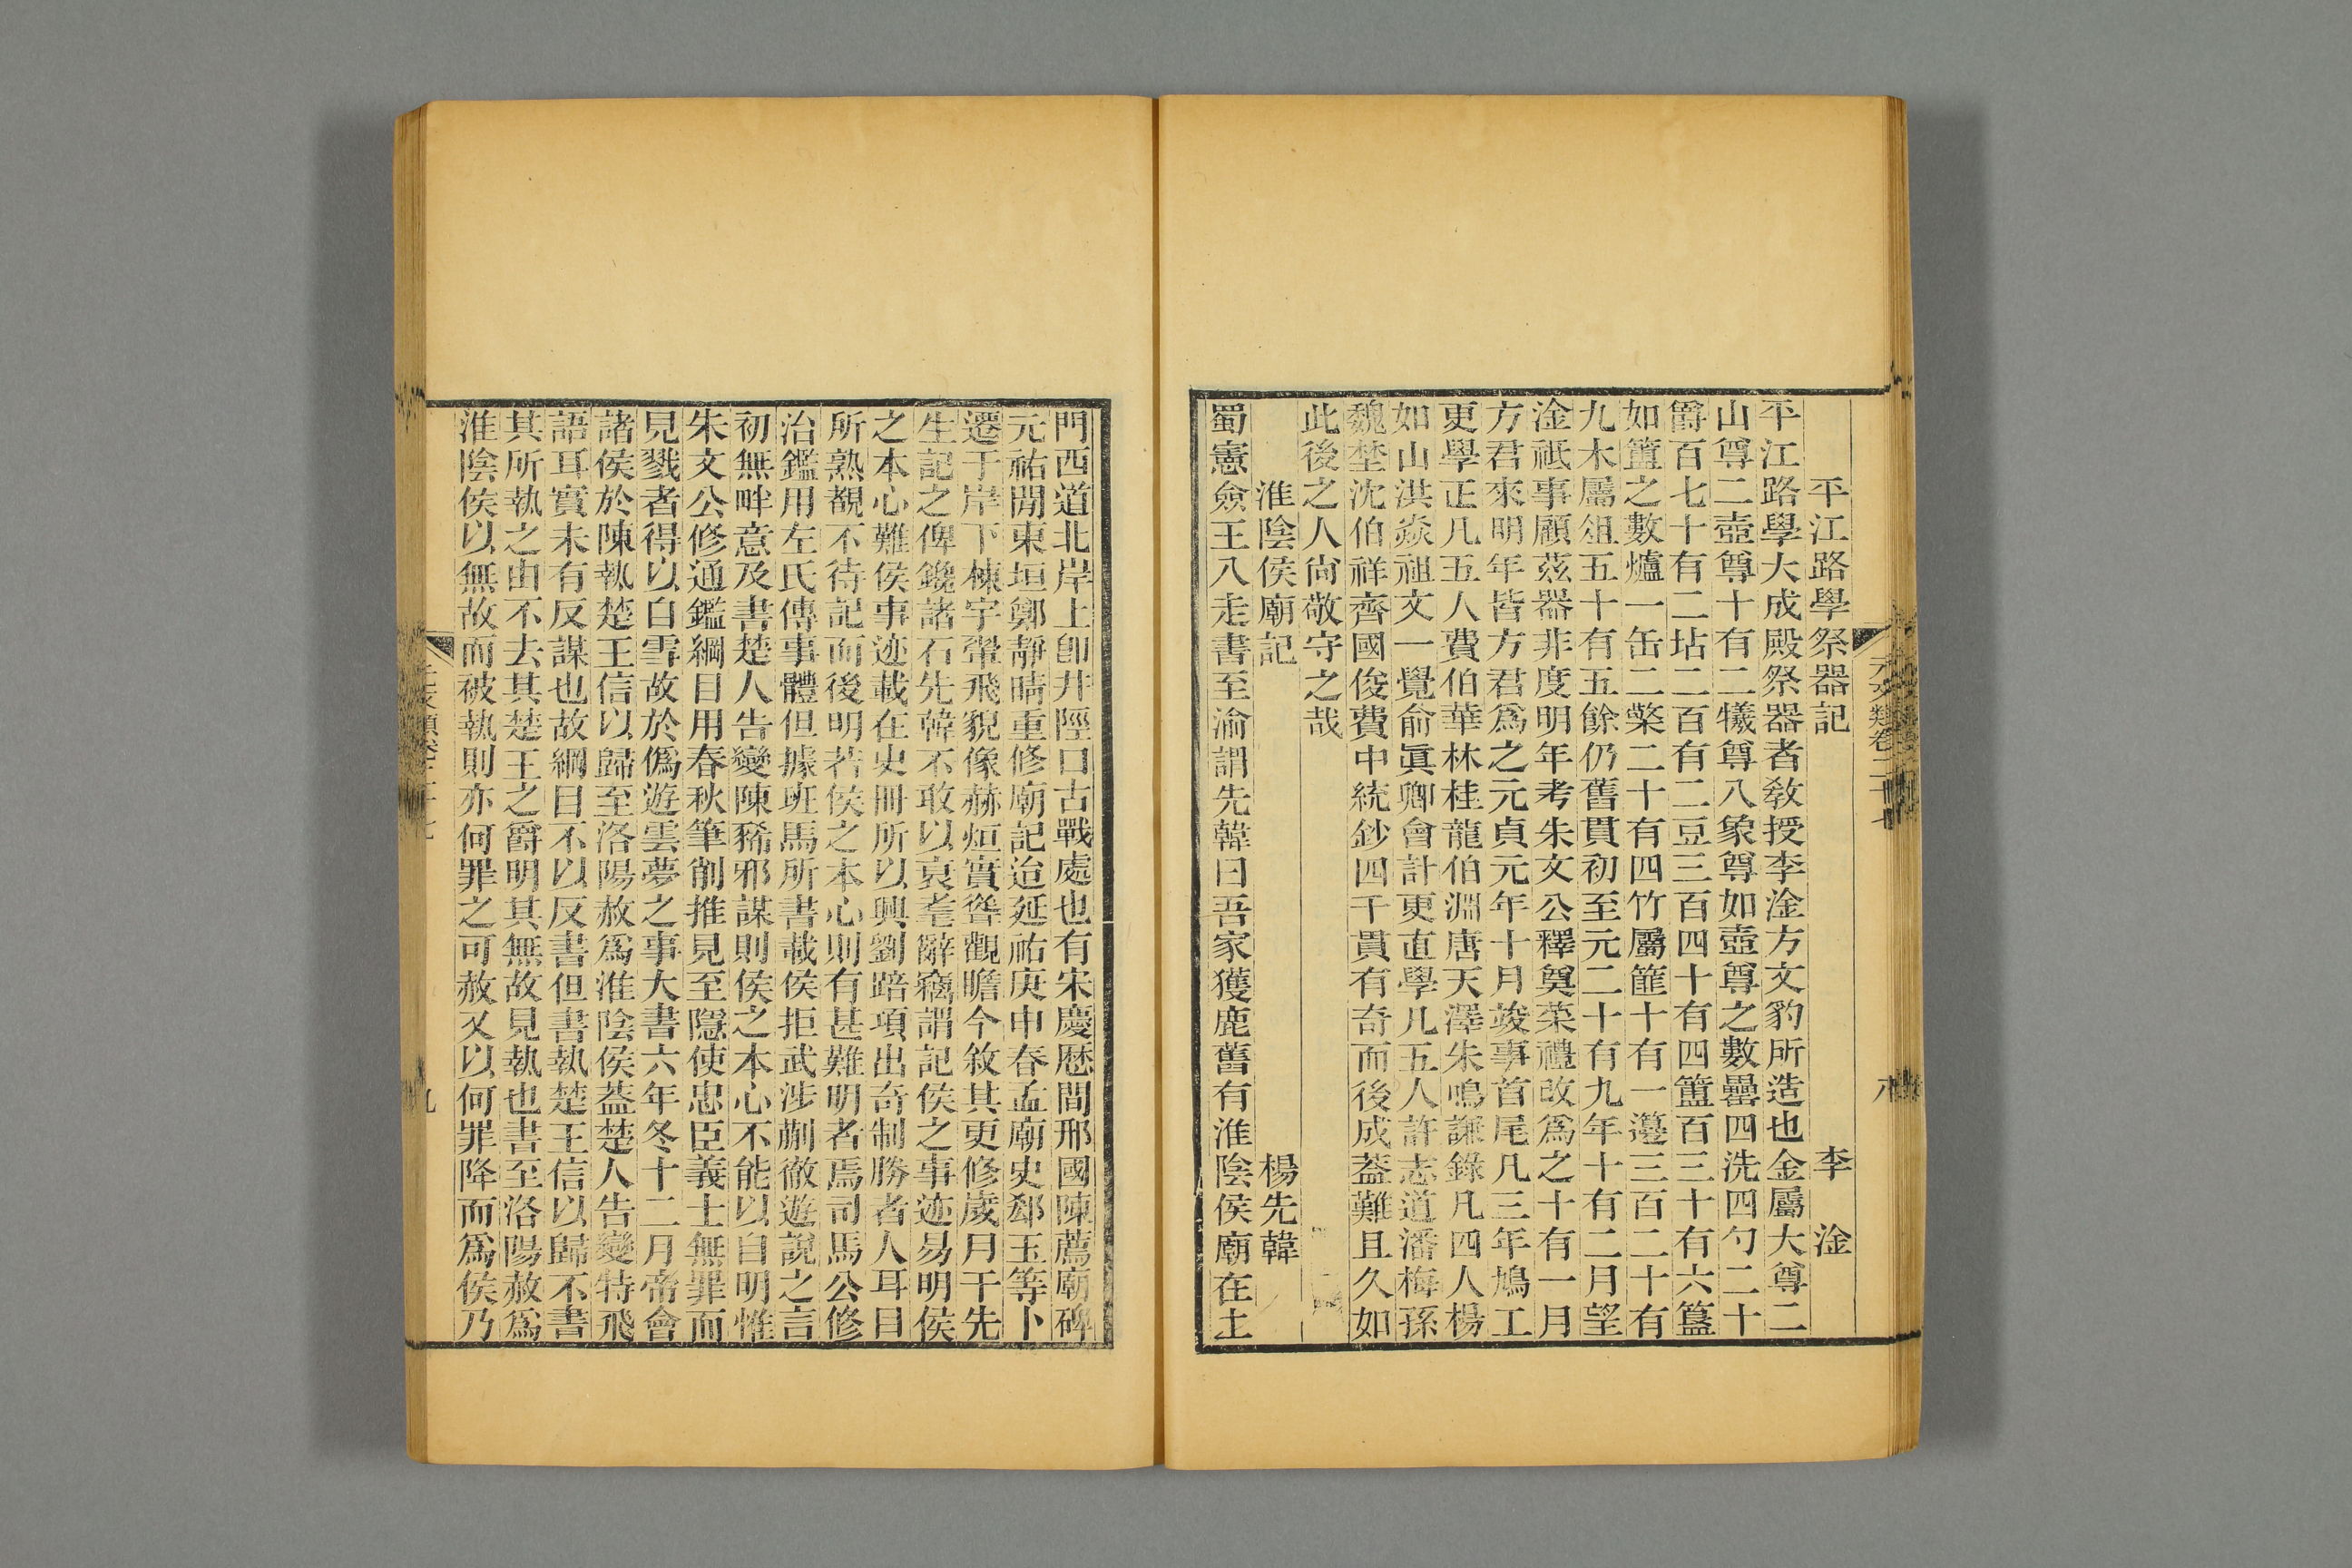 平江路學祭器記　李　淦
平江路學大成殿祭器者教授李淦方文豹所造也金屬大尊二
山尊二壺尊十有二犧尊八象尊如壺尊之數罍四洗四勺二十
爵百七十有二坫二百有二豆三百四十有四簠百三十有六簋
如簠之數爐一缶二檠二十有四竹屬篚十有一籩三百二十有
九木屬俎五十有五餘仍舊貫初至元二十有九年十有二月望
淦祗事顧茲器非度明年考朱文公釋奠菜禮改爲之十有一月
方君來明年皆方君爲之元貞元年十月竣事首尾凡三年鳩工
更學正凡五人費伯華林桂龍伯淵唐天澤朱鳴謙錄凡四人楊
如山洪焱祖文一覺俞眞卿會計更直學凡五人許志道潘梅孫
魏埜沈伯祥齊國俊費中統鈔四千貫有奇而後成葢難且久如
此後之人尙敬守之哉
淮陰侯廟記　楊先韓
蜀憲僉王八走書至渝謂先韓曰吾家獲鹿舊有淮陰侯廟在土
門西道北岸上卽井陘口古戰處也有宋慶歷間邢國陳薦廟碑
元祐閒東垣鄭靜時重修廟記迨延祐庚申春孟廟史郄玉等卜
遷于岸下棟宇翬飛貌像赫烜實聳觀瞻今敘其更修歲月干先
生記之俾鑱諸石先韓不敢以衰耄辭竊謂記侯之事迹易明侯
之本心難侯事迹載在史冊所以興劉踣項出奇制勝者人耳目
所熟覩不待記而後明若侯之本心則有甚難明者焉司馬公修
治鑑用左氏傳事體但據班馬所書載侯拒武涉蒯徹遊說之言
初無畔意及書楚人告變陳豨邪謀則侯之本心不能以自明惟
朱文公修通鑑綱目用春秋筆削推見至隱使忠臣義士無罪而
見戮者得以白雪故於僞遊雲夢之事大書六年冬十二月帝會
諸侯於陳執楚王信以歸至洛陽赦爲淮陰侯葢楚人告變特飛
語耳實未有反謀也故綱目不以反書但書執楚王信以歸不書
其所執之由不去其楚王之爵明其無故見執也書至洛陽赦爲
淮陰侯以無故而被執則亦何罪之可赦又以何罪降而爲侯乃